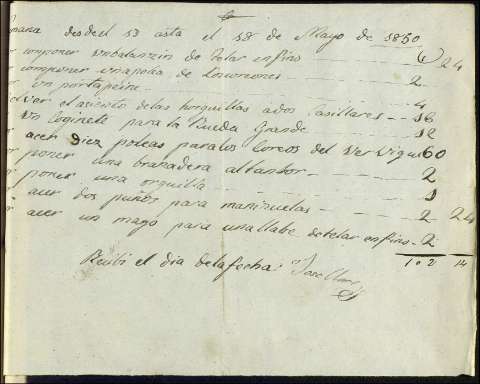 mana desde el 13 asta el 18 de Mayo de 1850
r componer un balanzin de telar en fino 6 24
r componer una pieza de 2
r un portapeine 4
olver el asiento de las horquillas a dos Casillares 16
Un Coginete para la Rueda Grande 12
r acer diez poleas para los Coreos del 60
or poner una brazadera al tanbor 2
r poner una orquilla 1
r acer dos puños para mañizuelas 2 24
r acer un mago para una llabe de telar en fino 2
102 14
Recibi el dia de la fecha: Jose